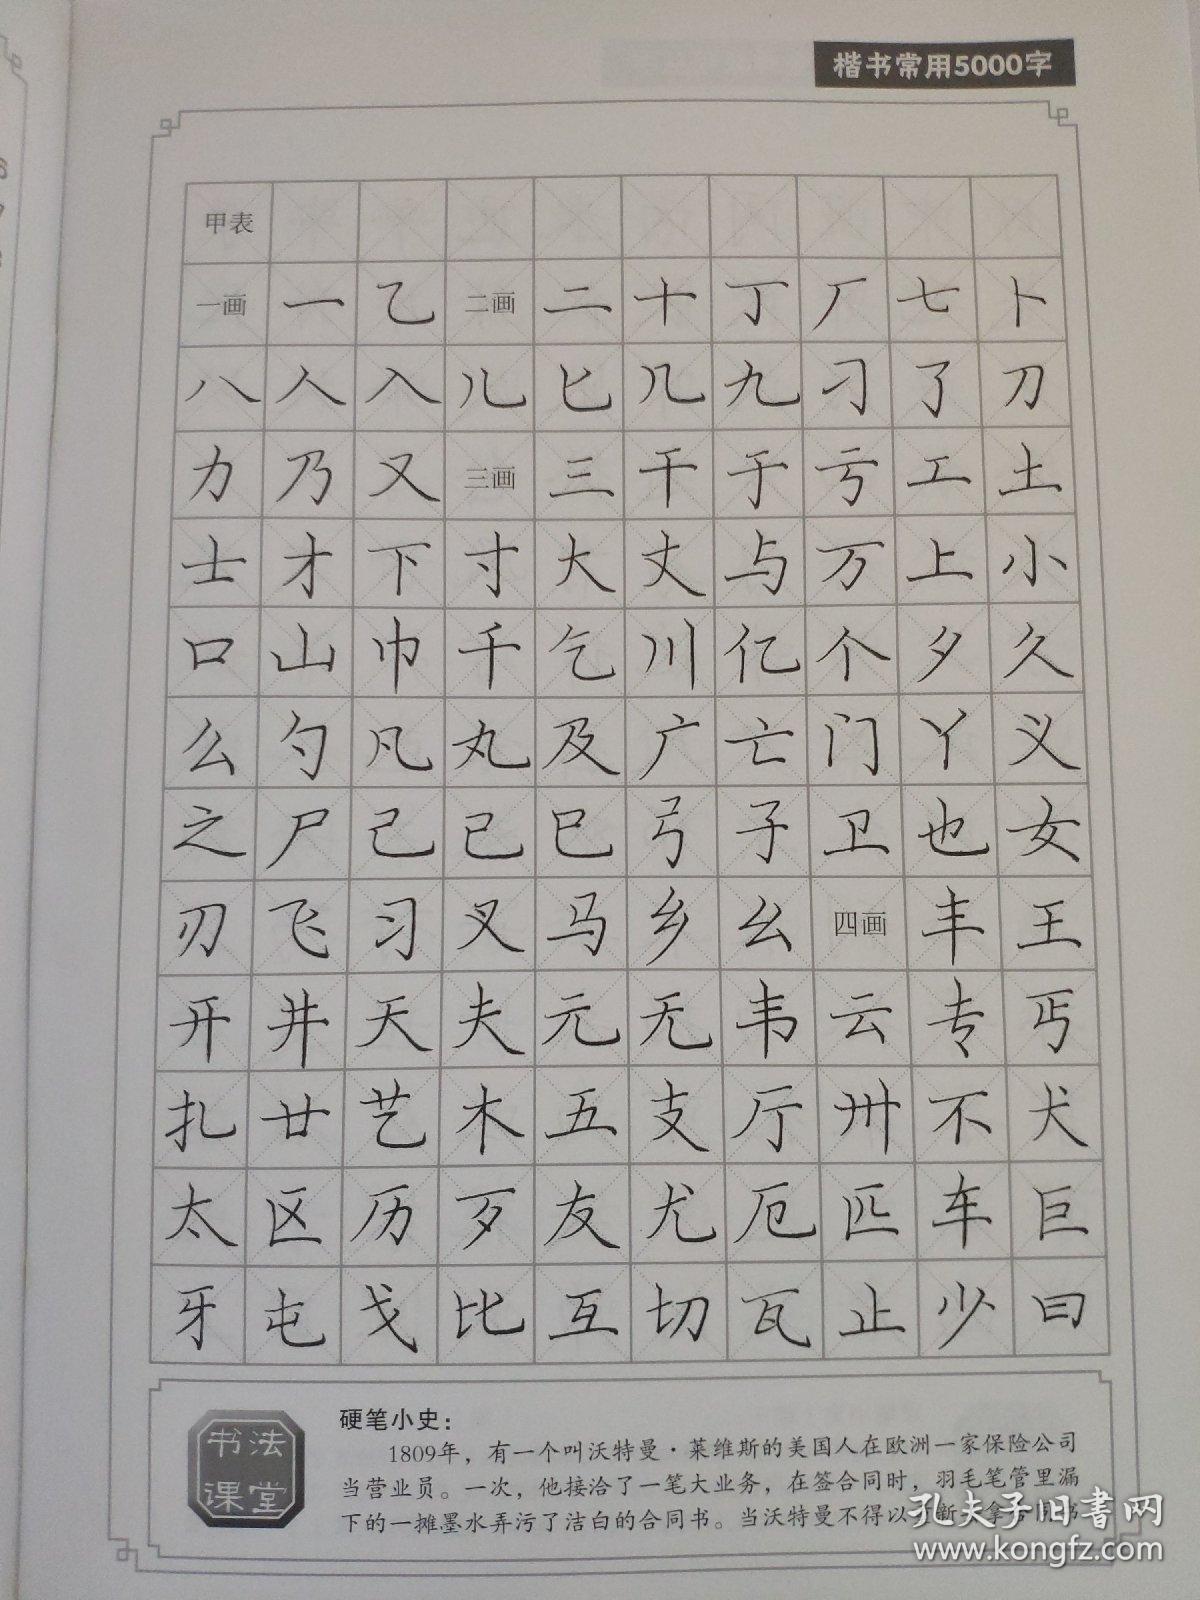 楷书常用5000字
甲表
一画 一 乙 二画 二 十 丁 厂 七 卜
八 人 入 儿 匕 几 九 刁 了 刀
力 乃 又 三画 三 干 于 亏 工 土
士 才 下 寸 大 丈 与 万 上 小
口 山 巾 千 乞 川 亿 个 夕 久
么 勺 凡 丸 及 广 亡 门 丫 义
之 尸 己 已 巳 弓 子 卫 也 女
刃 飞 习 叉 马 乡 幺 四画 丰 王
开 井 天 夫 元 无 韦 云 专 丐
扎 廿 艺 木 五 支 厅 卅 不 犬
太 区 历 歹 友 尤 厄 匹 车 巨
牙 屯 戈 比 互 切 瓦 止 少 曰
书法
课堂
硬笔小史：
1809年，有一个叫沃特曼·莱维斯的美国人在欧洲一家保险公司
当营业员。一次，他接洽了一笔大业务，在签合同时，羽毛笔管里漏
下的一摊墨水弄污了洁白的合同书。当沃特曼不得以
孔夫子旧书网
www.kongfz.com